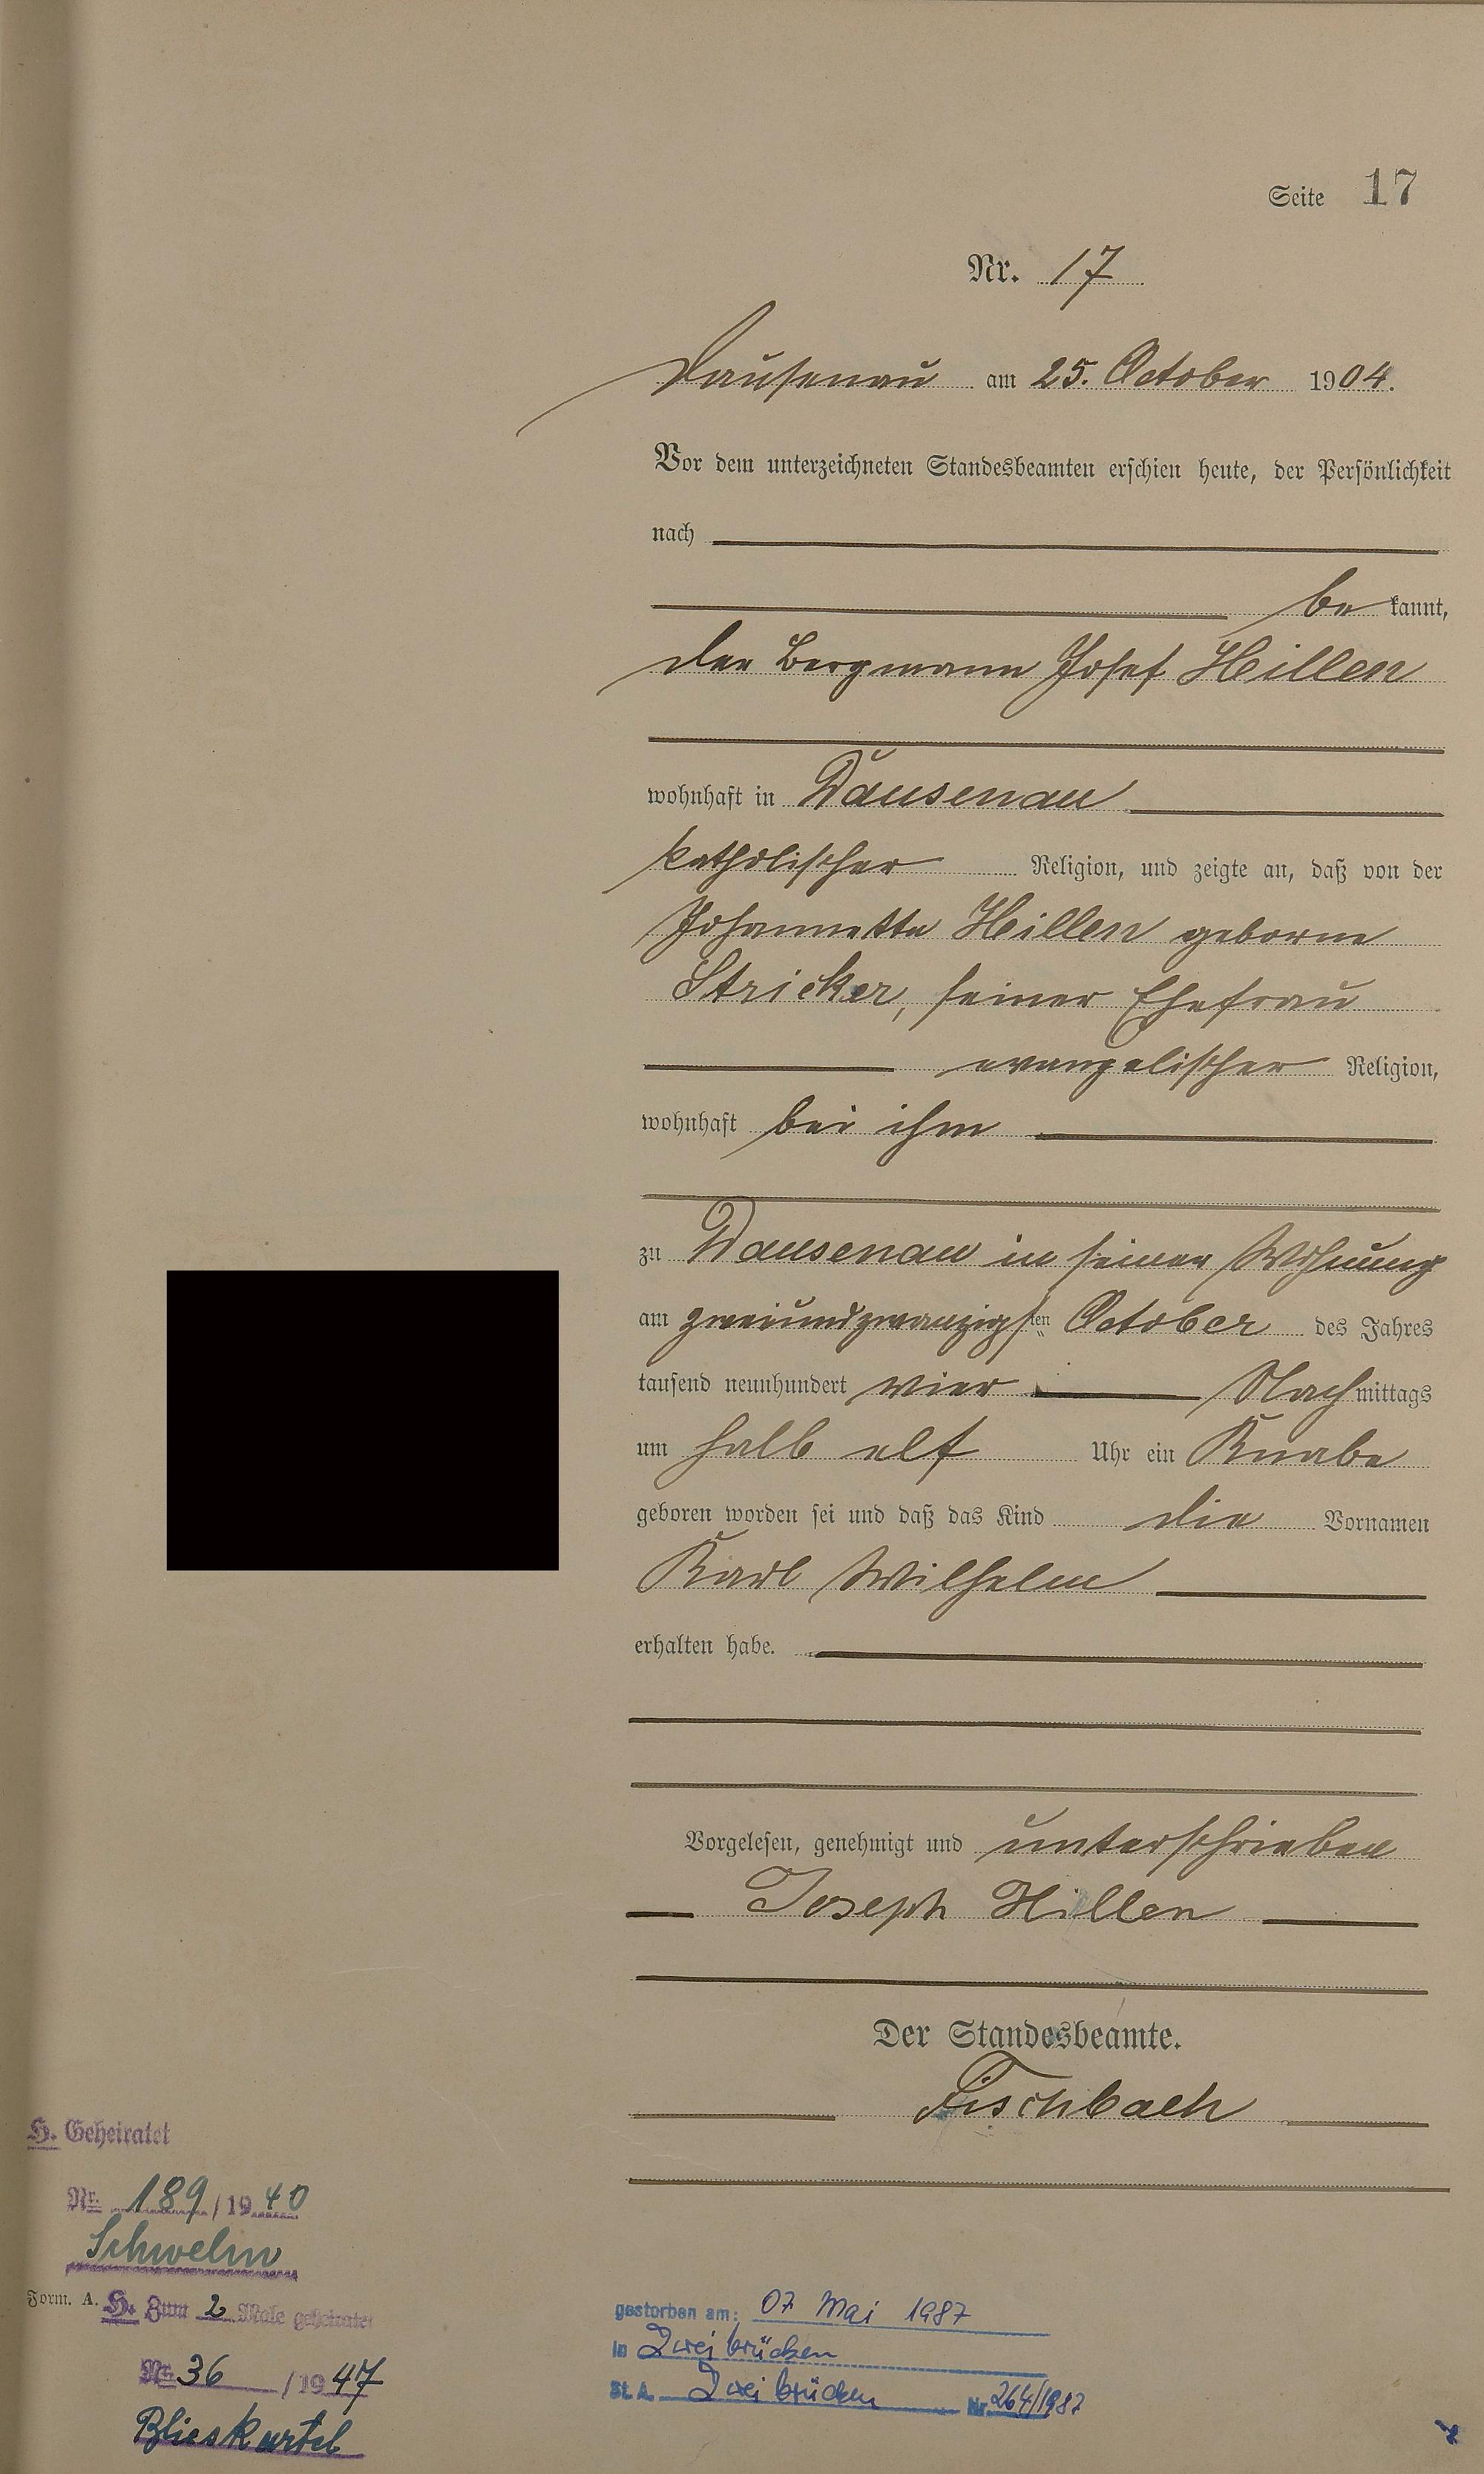 Seite 17
Nr. 17
Dausenau am 25. October 1904.
Vor dem unterzeichneten Standesbeamten erschien heute, der Persönlichkeit
nach
be kannt,
der Bergmann Josef Hillen
wohnhaft in Dausenau
katholischer Religion, und zeigte an, daß von der
Johannette Hillen geborne
Stricker, seiner Ehefrau
evangelischer Religion,
wohnhaft bei ihm
zu Dausenau in seiner Wohnung
am zweiundzwanzigsten October des Jahres
tausend neunhundert vier Nachmittags
um halb elf Uhr ein Knabe
geboren worden sei und daß das Kind die Vornamen
Karl Wilhelm
erhalten habe.
Vorgelesen, genehmigt und unterschrieben
Joseph Hillen
Der Standesbeamte.
Fischbach
H. Geheiratet
Nr. 189/1940
Schwelm
Form. A.
H. Zum 2 Male geheiratet
Nr. 36/1947
Blieskastel
gestorben am: 07 Mai 1987
in Zweibrücken
St. A. Zweibrücken Nr. 264/1987